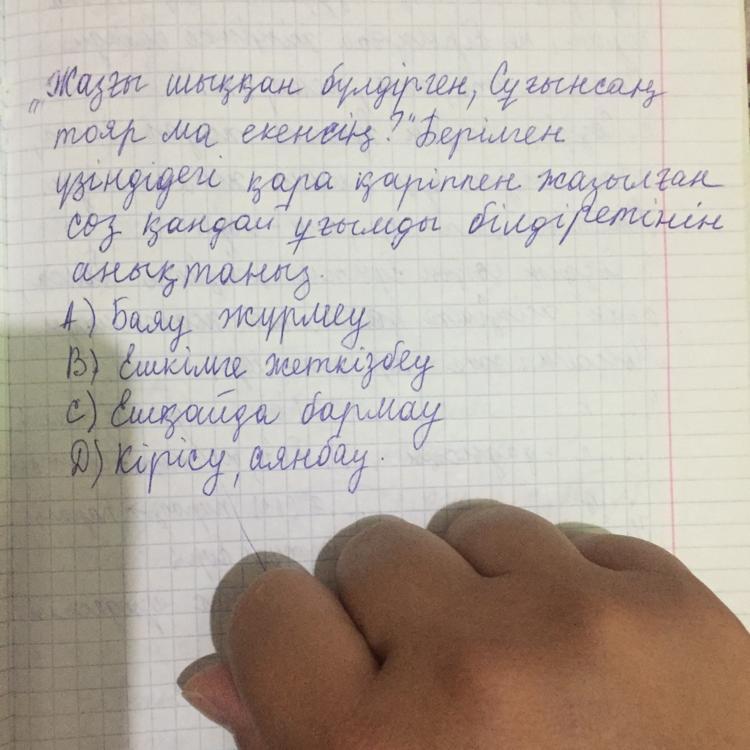 "Жазғы шыққан бүлдірген, Сұғынсаң
тояр ма екенсің?" Берілген
үзіндідегі қара қаріппен жазылған
сөз қандай ұғымды білдіретінін
анықтаңыз.
А) Баяу жүрмеу
В) Ешкімге жеткізбеу
С) Ешқайда бармау
D) Кірісу, аянбау.